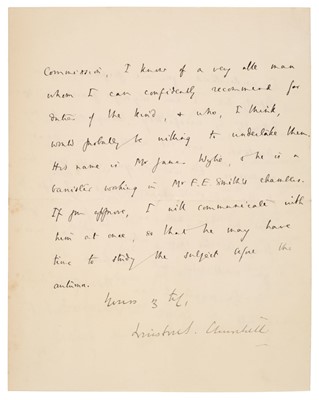 Commission, I know of a very able man
whom I can confidently recommend for
duties of the kind, & who, I think,
would probably be willing to undertake them.
His name is Mr. James Wylie, & he is a
barrister working in Mr F.E. Smith's chambers.
If you approve, I will communicate with
him at once, so that he may have
time to study the subject before the
autumn.
Yours
Winston S. Churchill